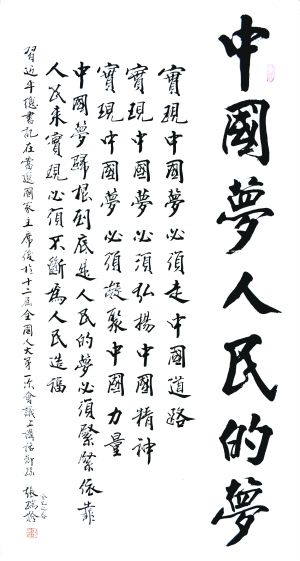 中國夢人民的夢
實現中國夢必須走中國道路
實現中國夢必須弘揚中國精神
實現中國夢必須凝聚中國力量
中國夢歸根到底是人民的夢必須緊緊依靠
人民來實現必須不斷為人民造福
習近平總書記在當選國家主席後於十二屆全國人大第一次會議上講話